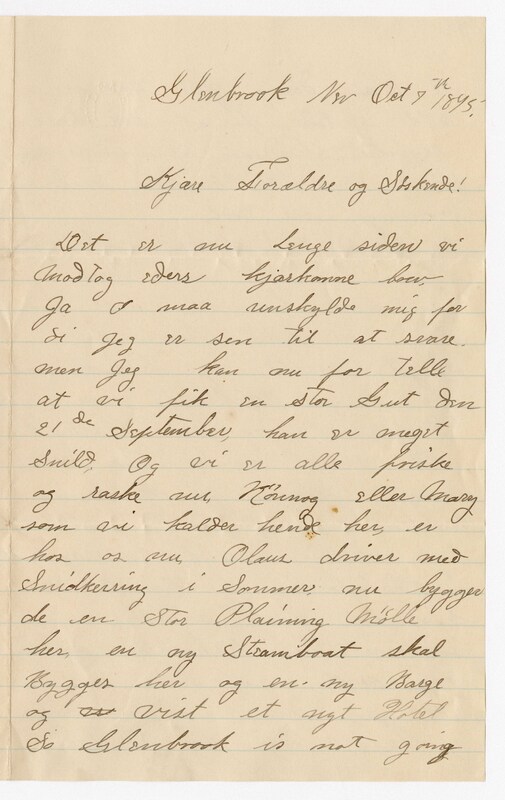 Glenbrook Nev Oct 9th 1895.
Kjære Forældre og Söskende!
Det er nu lenge siden vi
modtog eders kjærkomne brev,
Ja I maa unskylde mig for
di jeg er sen til at svare.
men Jeg kan nu for telle
at vi fik en stor Gut den
21de September, han er meget
Snild, Og vi er alle friske
og raske nu, eller Mary
som vi kalder hende her, er
hos os nu, Olaus driver med
Snidkerring i Sommer, nu bygger
de en Stor Plaining Mölle
her, en ny Steamboat skal
Bygges her og en ny Barge
og vist et nyt Hotel
So Glenbrook is not going